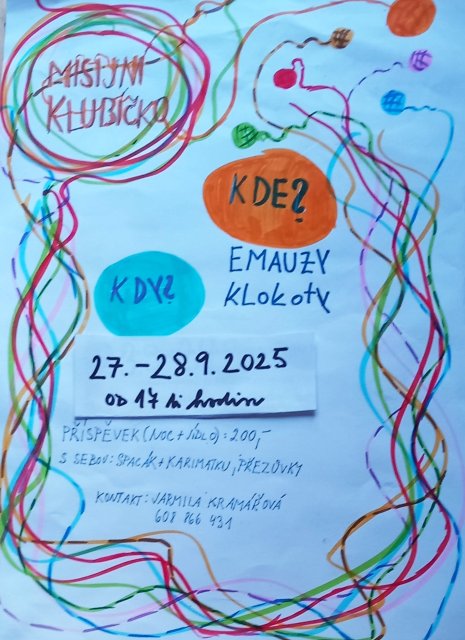 MISIJNÍ
KLUBÍČKO
KDE?
EMAUZY
KLOKOTY
KDY?
27.-28.9.2025
OD 17ti hodin
PŘÍSPĚVEK (NOC + JÍDLO): 200,-
S SEBOU: SPACÁK + KARIMATKU, PŘEZŮVKY
KONTAKT: JARMILA KRAMÁŘOVÁ
608 866 431